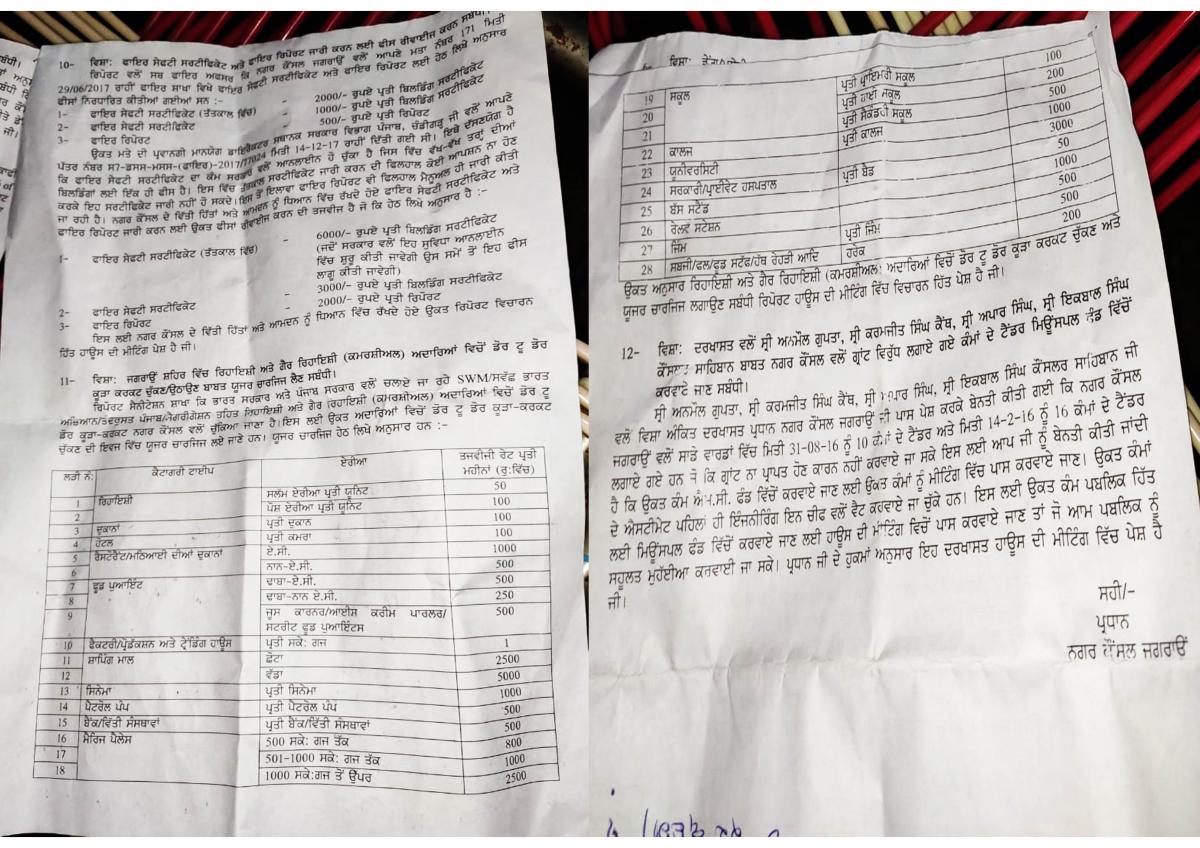 10- ਵਿਸ਼ਾ: ਫਾਇਰ ਸੇਫਟੀ ਸਰਟੀਫਿਕੇਟ ਅਤੇ ਫਾਇਰ ਰਿਪੋਰਟ ਜਾਰੀ ਕਰਨ ਲਈ ਫੀਸ ਰੀਵਾਈਜ ਕਰਨ ਸਬੰਧੀ।
ਰਿਪੋਰਟ ਵਲੋਂ ਸਬ ਫਾਇਰ ਅਫਸਰ ਕਿ ਨਗਰ ਕੌਂਸਲ ਜਗਰਾਉਂ ਵਲੋਂ ਆਪਣੇ ਮਤਾ ਨੰਬਰ 171 ਮਿਤੀ
29/06/2017 ਰਾਹੀਂ ਫਾਇਰ ਸ਼ਾਖਾ ਵਿਖੇ ਫਾਇਰ ਸੇਫਟੀ ਸਰਟੀਫਿਕੇਟ ਅਤੇ ਫਾਇਰ ਰਿਪੋਰਟ ਲਈ ਹੇਠ ਲਿਖੇ ਅਨੁਸਾਰ
ਫੀਸਾਂ ਨਿਰਧਾਰਿਤ ਕੀਤੀਆਂ ਗਈਆਂ ਸਨ :-
1- ਫਾਇਰ ਸੇਫਟੀ ਸਰਟੀਫਿਕੇਟ (ਤੱਤਕਾਲ ਵਿੱਚ) - 2000/- ਰੁਪਏ ਪ੍ਰਤੀ ਬਿਲਡਿੰਗ ਸਰਟੀਫਿਕੇਟ
2- ਫਾਇਰ ਸੇਫਟੀ ਸਰਟੀਫਿਕੇਟ - 1000/- ਰੁਪਏ ਪ੍ਰਤੀ ਬਿਲਡਿੰਗ ਸਰਟੀਫਿਕੇਟ
3- ਫਾਇਰ ਰਿਪੋਰਟ - 500/- ਰੁਪਏ ਪ੍ਰਤੀ ਰਿਪੋਰਟ
ਉਕਤ ਮਤੇ ਦੀ ਪ੍ਰਵਾਨਗੀ ਮਾਨਯੋਗ ਡਾਇਰੈਕਟਰ ਸਥਾਨਕ ਸਰਕਾਰ ਵਿਭਾਗ ਪੰਜਾਬ, ਚੰਡੀਗੜ੍ਹ ਜੀ ਵਲੋਂ ਆਪਣੇ
ਪੱਤਰ ਨੰਬਰ ਸ7-ਡਸਸ-ਮਸਸ-(ਫਾਇਰ)-2017/77024 ਮਿਤੀ 14-12-17 ਰਾਹੀਂ ਦਿੱਤੀ ਗਈ ਸੀ। ਇਥੇ ਦੱਸਣਯੋਗ ਹੈ
ਕਿ ਫਾਇਰ ਸੇਫਟੀ ਸਰਟੀਫਿਕੇਟ ਦਾ ਕੰਮ ਸਰਕਾਰ ਵਲੋਂ ਆਨਲਾਈਨ ਹੋ ਚੁੱਕਾ ਹੈ ਜਿਸ ਵਿੱਚ ਵੱਖ-ਵੱਖ ਤਰ੍ਹਾਂ ਦੀਆਂ
ਬਿਲਡਿੰਗਾਂ ਲਈ ਇੱਕ ਹੀ ਫੀਸ ਹੈ। ਇਸ ਵਿੱਚ ਤੱਤਕਾਲ ਸਰਟੀਫਿਕੇਟ ਜਾਰੀ ਕਰਨ ਦੀ ਫਿਲਹਾਲ ਕੋਈ ਆਪਸ਼ਨ ਨਾ ਹੋਣ
ਕਰਕੇ ਇਹ ਸਰਟੀਫਿਕੇਟ ਜਾਰੀ ਨਹੀਂ ਹੋ ਸਕਦੇ। ਇਸ ਤੋਂ ਇਲਾਵਾ ਫਾਇਰ ਰਿਪੋਰਟ ਵੀ ਫਿਲਹਾਲ ਮੈਨੂਅਲ ਹੀ ਜਾਰੀ ਕੀਤੀ
ਜਾ ਰਹੀ ਹੈ। ਨਗਰ ਕੌਂਸਲ ਦੇ ਵਿੱਤੀ ਹਿੱਤਾਂ ਅਤੇ ਆਮਦਨ ਨੂੰ ਧਿਆਨ ਵਿੱਚ ਰੱਖਦੇ ਹੋਏ ਫਾਇਰ ਸੇਫਟੀ ਸਰਟੀਫਿਕੇਟ ਅਤੇ
ਫਾਇਰ ਰਿਪੋਰਟ ਜਾਰੀ ਕਰਨ ਲਈ ਉਕਤ ਫੀਸਾਂ ਰੀਵਾਈਜ ਕਰਨ ਦੀ ਤਜਵੀਜ ਹੈ ਜੋ ਕਿ ਹੇਠ ਲਿਖੇ ਅਨੁਸਾਰ ਹੈ :-
1- ਫਾਇਰ ਸੇਫਟੀ ਸਰਟੀਫਿਕੇਟ (ਤੱਤਕਾਲ ਵਿੱਚ) - 6000/- ਰੁਪਏ ਪ੍ਰਤੀ ਬਿਲਡਿੰਗ ਸਰਟੀਫਿਕੇਟ
(ਜਦੋਂ ਸਰਕਾਰ ਵਲੋਂ ਇਹ ਸੁਵਿਧਾ ਆਨਲਾਈਨ
ਵਿੱਚ ਸ਼ੁਰੂ ਕੀਤੀ ਜਾਵੇਗੀ ਉਸ ਸਮੇਂ ਤੋਂ ਇਹ ਫੀਸ
ਲਾਗੂ ਕੀਤੀ ਜਾਵੇਗੀ)
2- ਫਾਇਰ ਸੇਫਟੀ ਸਰਟੀਫਿਕੇਟ - 3000/- ਰੁਪਏ ਪ੍ਰਤੀ ਬਿਲਡਿੰਗ ਸਰਟੀਫਿਕੇਟ
3- ਫਾਇਰ ਰਿਪੋਰਟ - 2000/- ਰੁਪਏ ਪ੍ਰਤੀ ਰਿਪੋਰਟ
ਇਸ ਲਈ ਨਗਰ ਕੌਂਸਲ ਦੇ ਵਿੱਤੀ ਹਿਤਾਂ ਅਤੇ ਆਮਦਨ ਨੂੰ ਧਿਆਨ ਵਿੱਚ ਰੱਖਦੇ ਹੋਏ ਉਕਤ ਰਿਪੋਰਟ ਵਿਚਾਰਨ
ਹਿੱਤ ਹਾਊਸ ਦੀ ਮੀਟਿੰਗ ਪੇਸ਼ ਹੈ ਜੀ।
11- ਵਿਸ਼ਾ: ਜਗਰਾਉਂ ਸ਼ਹਿਰ ਵਿੱਚ ਰਿਹਾਇਸ਼ੀ ਅਤੇ ਗੈਰ ਰਿਹਾਇਸ਼ੀ (ਕਮਰਸ਼ੀਅਲ) ਅਦਾਰਿਆਂ ਵਿਚੋਂ ਡੋਰ ਟੂ ਡੋਰ
ਕੂੜਾ ਕਰਕਟ ਚੁੱਕਣ/ਉਠਾਉਣ ਬਾਬਤ ਯੂਜਰ ਚਾਰਜਿਜ ਲੈਣ ਸਬੰਧੀ।
ਰਿਪੋਰਟ ਸੈਨੀਟੇਸ਼ਨ ਸ਼ਾਖਾ ਕਿ ਭਾਰਤ ਸਰਕਾਰ ਅਤੇ ਪੰਜਾਬ ਸਰਕਾਰ ਵਲੋਂ ਚਲਾਏ ਜਾ ਰਹੇ SWM/ਸਵੱਛ ਭਾਰਤ
ਅਭਿਆਨ/ਤੰਦਰੁਸਤ ਪੰਜਾਬ/ਸੈਗਰੀਗੇਸ਼ਨ ਤਹਿਤ ਰਿਹਾਇਸ਼ੀ ਅਤੇ ਗੈਰ ਰਿਹਾਇਸ਼ੀ (ਕਮਰਸ਼ੀਅਲ) ਅਦਾਰਿਆਂ ਵਿਚੋਂ ਡੋਰ ਟੂ
ਡੋਰ ਕੂੜਾ-ਕਰਕਟ ਨਗਰ ਕੌਂਸਲ ਵਲੋਂ ਚੁੱਕਿਆ ਜਾਣਾ ਹੈ। ਇਸ ਲਈ ਉਕਤ ਅਦਾਰਿਆਂ ਵਿਚੋਂ ਡੋਰ ਟੂ ਡੋਰ ਕੂੜਾ-ਕਰਕਟ
ਚੁੱਕਣ ਦੀ ਇਵਜ ਵਿੱਚ ਯੂਜਰ ਚਾਰਜਿਜ ਲਏ ਜਾਣੇ ਹਨ। ਯੂਜਰ ਚਾਰਜਿਜ ਹੇਠ ਲਿਖੇ ਅਨੁਸਾਰ ਹਨ :-
ਲੜੀ ਨੰ: ਕੈਟਾਗਰੀ ਟਾਈਪ ਏਰੀਆ ਤਜਵੀਜੀ ਰੇਟ ਪ੍ਰਤੀ
ਮਹੀਨਾ (ਰੁ:ਵਿੱਚ)
1 ਰਿਹਾਇਸ਼ੀ ਸਲੱਮ ਏਰੀਆ ਪ੍ਰਤੀ ਯੂਨਿਟ 50
2 ਪੋਸ਼ ਏਰੀਆ ਪ੍ਰਤੀ ਯੂਨਿਟ 100
3 ਦੁਕਾਨਾਂ ਪ੍ਰਤੀ ਦੁਕਾਨ 100
4 ਹੋਟਲ ਪ੍ਰਤੀ ਕਮਰਾ 100
5 ਰੈਸਟੋਰੈਂਟ/ਮਠਿਆਈ ਦੀਆਂ ਦੁਕਾਨਾਂ ਏ.ਸੀ. 1000
6 ਨਾਨ-ਏ.ਸੀ. 500
7 ਫੂਡ ਪੁਆਇੰਟ ਢਾਬਾ-ਏ.ਸੀ. 500
8 ਢਾਬਾ-ਨਾਨ ਏ.ਸੀ. 250
9 ਜੂਸ ਕਾਰਨਰ/ਆਈਸ ਕਰੀਮ ਪਾਰਲਰ/ 500
ਸਟਰੀਟ ਫੂਡ ਪੁਆਇੰਟਸ
10 ਫੈਕਟਰੀ/ਪ੍ਰੋਡੱਕਸ਼ਨ ਅਤੇ ਟ੍ਰੇਡਿੰਗ ਹਾਊਸ ਪ੍ਰਤੀ ਸਕੇ: ਗਜ 1
11 ਸ਼ਾਪਿੰਗ ਮਾਲ ਛੋਟਾ 2500
12 ਵੱਡਾ 5000
13 ਸਿਨੇਮਾ ਪ੍ਰਤੀ ਸਿਨੇਮਾ 1000
14 ਪੈਟਰੋਲ ਪੰਪ ਪ੍ਰਤੀ ਪੈਟਰੋਲ ਪੰਪ 500
15 ਬੈਂਕ/ਵਿੱਤੀ ਸੰਸਥਾਵਾਂ ਪ੍ਰਤੀ ਬੈਂਕ/ਵਿੱਤੀ ਸੰਸਥਾਵਾਂ 500
16 ਮੈਰਿਜ ਪੈਲੇਸ 500 ਸਕੇ: ਗਜ ਤੱਕ 800
17 501-1000 ਸਕੇ: ਗਜ ਤੱਕ 1000
18 1000 ਸਕੇ:ਗਜ ਤੋਂ ਉੱਪਰ 2500
19 ਸਕੂਲ ਪ੍ਰਤੀ ਪ੍ਰਾਇਮਰੀ ਸਕੂਲ 100
20 ਪ੍ਰਤੀ ਹਾਈ ਸਕੂਲ 200
21 ਪ੍ਰਤੀ ਸੈਕੰਡਰੀ ਸਕੂਲ 500
22 ਕਾਲਜ ਪ੍ਰਤੀ ਕਾਲਜ 1000
23 ਯੂਨੀਵਰਸਿਟੀ 3000
24 ਸਰਕਾਰੀ/ਪ੍ਰਾਈਵੇਟ ਹਸਪਤਾਲ ਪ੍ਰਤੀ ਬੈਡ 50
25 ਬੱਸ ਸਟੈਂਡ 1000
26 ਰੇਲਵੇ ਸਟੇਸ਼ਨ 500
27 ਜਿੰਮ ਪ੍ਰਤੀ ਜਿੰਮ 500
28 ਸਬਜੀ/ਫਲ/ਫੂਡ ਸਟੱਫ/ਹੱਥ ਰੇਹੜੀ ਆਦਿ ਹਰੇਕ 200
ਉਕਤ ਅਨੁਸਾਰ ਰਿਹਾਇਸ਼ੀ ਅਤੇ ਗੈਰ ਰਿਹਾਇਸ਼ੀ (ਕਮਰਸ਼ੀਅਲ) ਅਦਾਰਿਆਂ ਵਿਚੋਂ ਡੋਰ ਟੂ ਡੋਰ ਕੂੜਾ ਕਰਕਟ ਚੁੱਕਣ ਅਤੇ
ਯੂਜਰ ਚਾਰਜਿਜ ਲਗਾਉਣ ਸਬੰਧੀ ਰਿਪੋਰਟ ਹਾਊਸ ਦੀ ਮੀਟਿੰਗ ਵਿੱਚ ਵਿਚਾਰਨ ਹਿੱਤ ਪੇਸ਼ ਹੈ ਜੀ।
12- ਵਿਸ਼ਾ: ਦਰਖਾਸਤ ਵਲੋਂ ਸ੍ਰੀ ਅਨਮੋਲ ਗੁਪਤਾ, ਸ੍ਰੀ ਕਰਮਜੀਤ ਸਿੰਘ ਕੈਂਥ, ਸ੍ਰੀ ਅਪਾਰ ਸਿੰਘ, ਸ੍ਰੀ ਇਕਬਾਲ ਸਿੰਘ
ਕੌਂਸਲਰ ਸਾਹਿਬਾਨ ਬਾਬਤ ਨਗਰ ਕੌਂਸਲ ਵਲੋਂ ਗ੍ਰਾਂਟ ਵਿਰੁੱਧ ਲਗਾਏ ਗਏ ਕੰਮਾਂ ਦੇ ਟੈਂਡਰ ਮਿਊਂਸਪਲ ਫੰਡ ਵਿੱਚੋਂ
ਕਰਵਾਏ ਜਾਣ ਸਬੰਧੀ।
ਸ੍ਰੀ ਅਨਮੋਲ ਗੁਪਤਾ, ਸ੍ਰੀ ਕਰਮਜੀਤ ਸਿੰਘ ਕੈਂਥ, ਸ੍ਰੀ ਅਪਾਰ ਸਿੰਘ, ਸ੍ਰੀ ਇਕਬਾਲ ਸਿੰਘ ਕੌਂਸਲਰ ਸਾਹਿਬਾਨ ਜੀ
ਵਲੋਂ ਵਿਸ਼ਾ ਅੰਕਿਤ ਦਰਖਾਸਤ ਪ੍ਰਧਾਨ ਨਗਰ ਕੌਂਸਲ ਜਗਰਾਉਂ ਜੀ ਪਾਸ ਪੇਸ਼ ਕਰਕੇ ਬੇਨਤੀ ਕੀਤੀ ਗਈ ਕਿ ਨਗਰ ਕੌਂਸਲ
ਜਗਰਾਉਂ ਵਲੋਂ ਸਾਡੇ ਵਾਰਡਾਂ ਵਿੱਚ ਮਿਤੀ 31-08-16 ਨੂੰ 10 ਕੰਮਾਂ ਦੇ ਟੈਂਡਰ ਅਤੇ ਮਿਤੀ 14-2-16 ਨੂੰ 16 ਕੰਮਾਂ ਦੇ ਟੈਂਡਰ
ਲਗਾਏ ਗਏ ਹਨ ਜੋ ਕਿ ਗ੍ਰਾਂਟ ਨਾ ਪ੍ਰਾਪਤ ਹੋਣ ਕਾਰਨ ਨਹੀਂ ਕਰਵਾਏ ਜਾ ਸਕੇ ਇਸ ਲਈ ਆਪ ਜੀ ਨੂੰ ਬੇਨਤੀ ਕੀਤੀ ਜਾਂਦੀ
ਹੈ ਕਿ ਉਕਤ ਕੰਮ ਐਮ.ਸੀ. ਫੰਡ ਵਿੱਚੋਂ ਕਰਵਾਏ ਜਾਣ ਲਈ ਉਕਤ ਕੰਮਾਂ ਨੂੰ ਮੀਟਿੰਗ ਵਿੱਚ ਪਾਸ ਕਰਵਾਏ ਜਾਣ। ਉਕਤ ਕੰਮਾਂ
ਦੇ ਐਸਟੀਮੇਟ ਪਹਿਲਾਂ ਹੀ ਇੰਜਨੀਰਿੰਗ ਇਨ ਚੀਫ ਵਲੋਂ ਵੈਟ ਕਰਵਾਏ ਜਾ ਚੁੱਕੇ ਹਨ। ਇਸ ਲਈ ਉਕਤ ਕੰਮ ਪਬਲਿਕ ਹਿੱਤ
ਲਈ ਮਿਊਂਸਪਲ ਫੰਡ ਵਿੱਚੋਂ ਕਰਵਾਏ ਜਾਣ ਲਈ ਹਾਊਸ ਦੀ ਮੀਟਿੰਗ ਵਿਚੋਂ ਪਾਸ ਕਰਵਾਏ ਜਾਣ ਤਾਂ ਜੋ ਆਮ ਪਬਲਿਕ ਨੂੰ
ਸਹੂਲਤ ਮੁਹੱਈਆ ਕਰਵਾਈ ਜਾ ਸਕੇ। ਪ੍ਰਧਾਨ ਜੀ ਦੇ ਹੁਕਮਾਂ ਅਨੁਸਾਰ ਇਹ ਦਰਖਾਸਤ ਹਾਊਸ ਦੀ ਮੀਟਿੰਗ ਵਿੱਚ ਪੇਸ਼ ਹੈ
ਜੀ।
ਸਹੀ/-
ਪ੍ਰਧਾਨ
ਨਗਰ ਕੌਂਸਲ ਜਗਰਾਉਂ